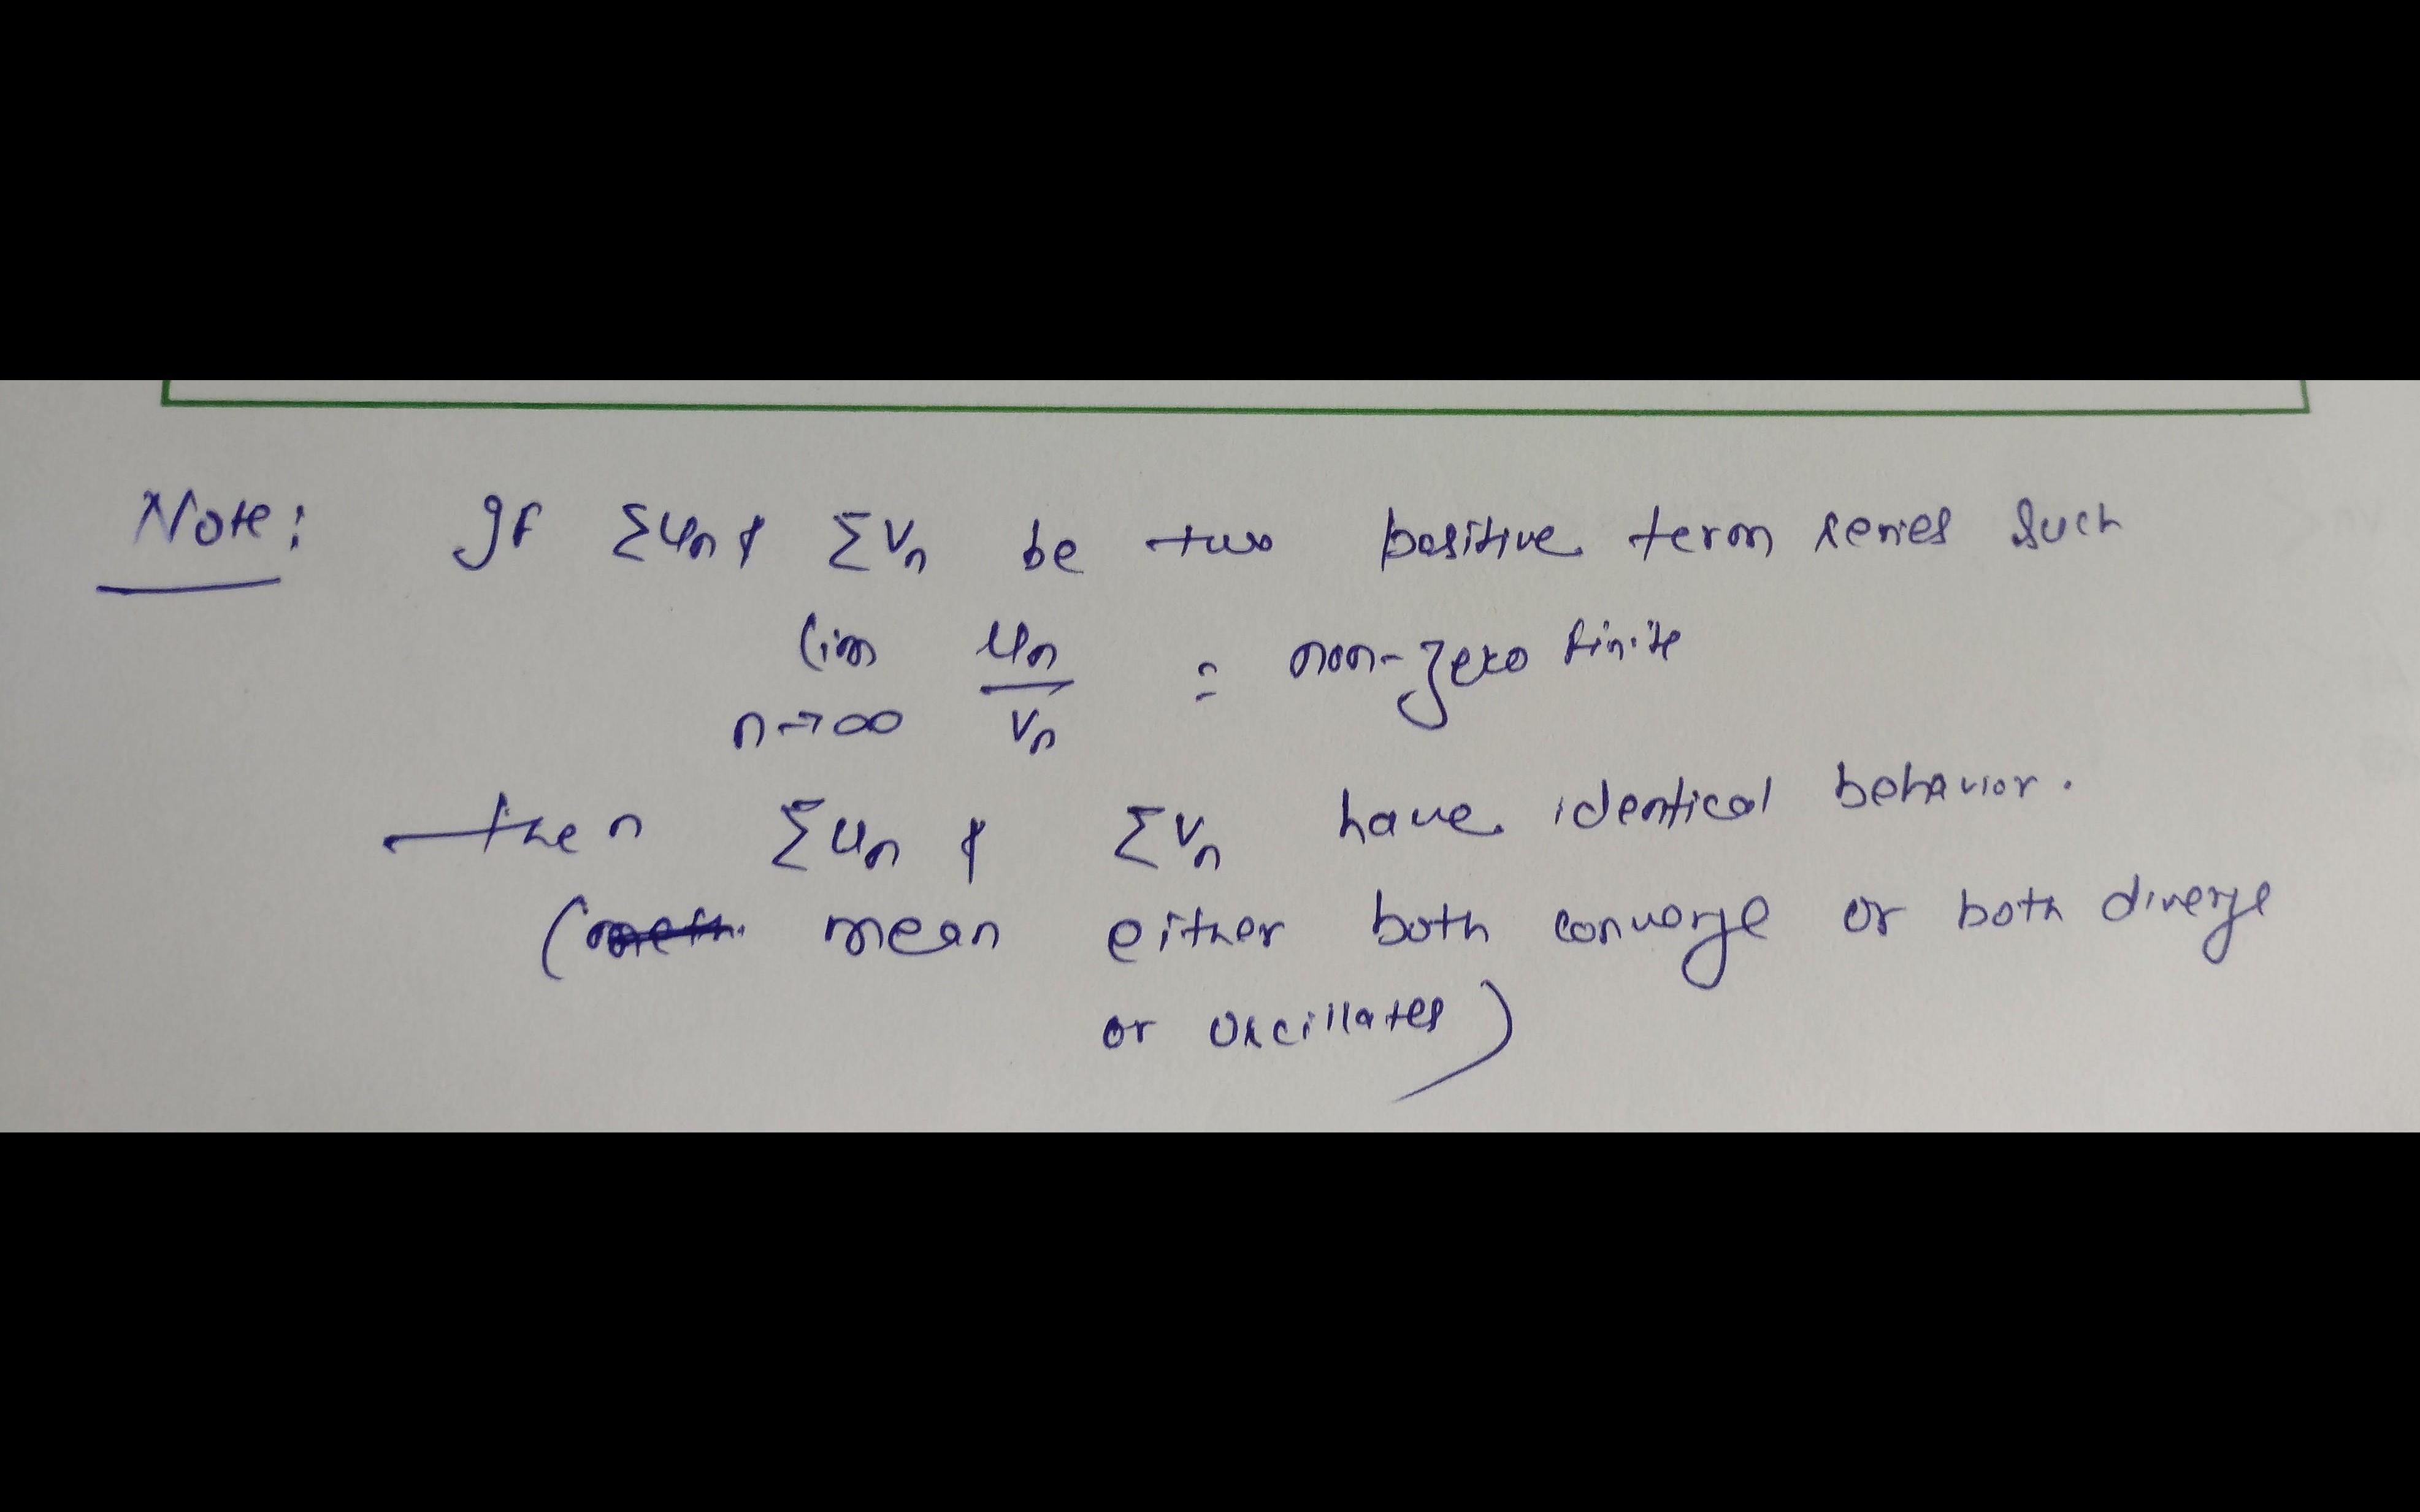 Note: If Σun & Σvn be two positive term series such
lim un/vn = non-zero finite
n→∞
then Σun & Σvn have identical behavior.
( mean either both converge or both diverge
or oscillates)